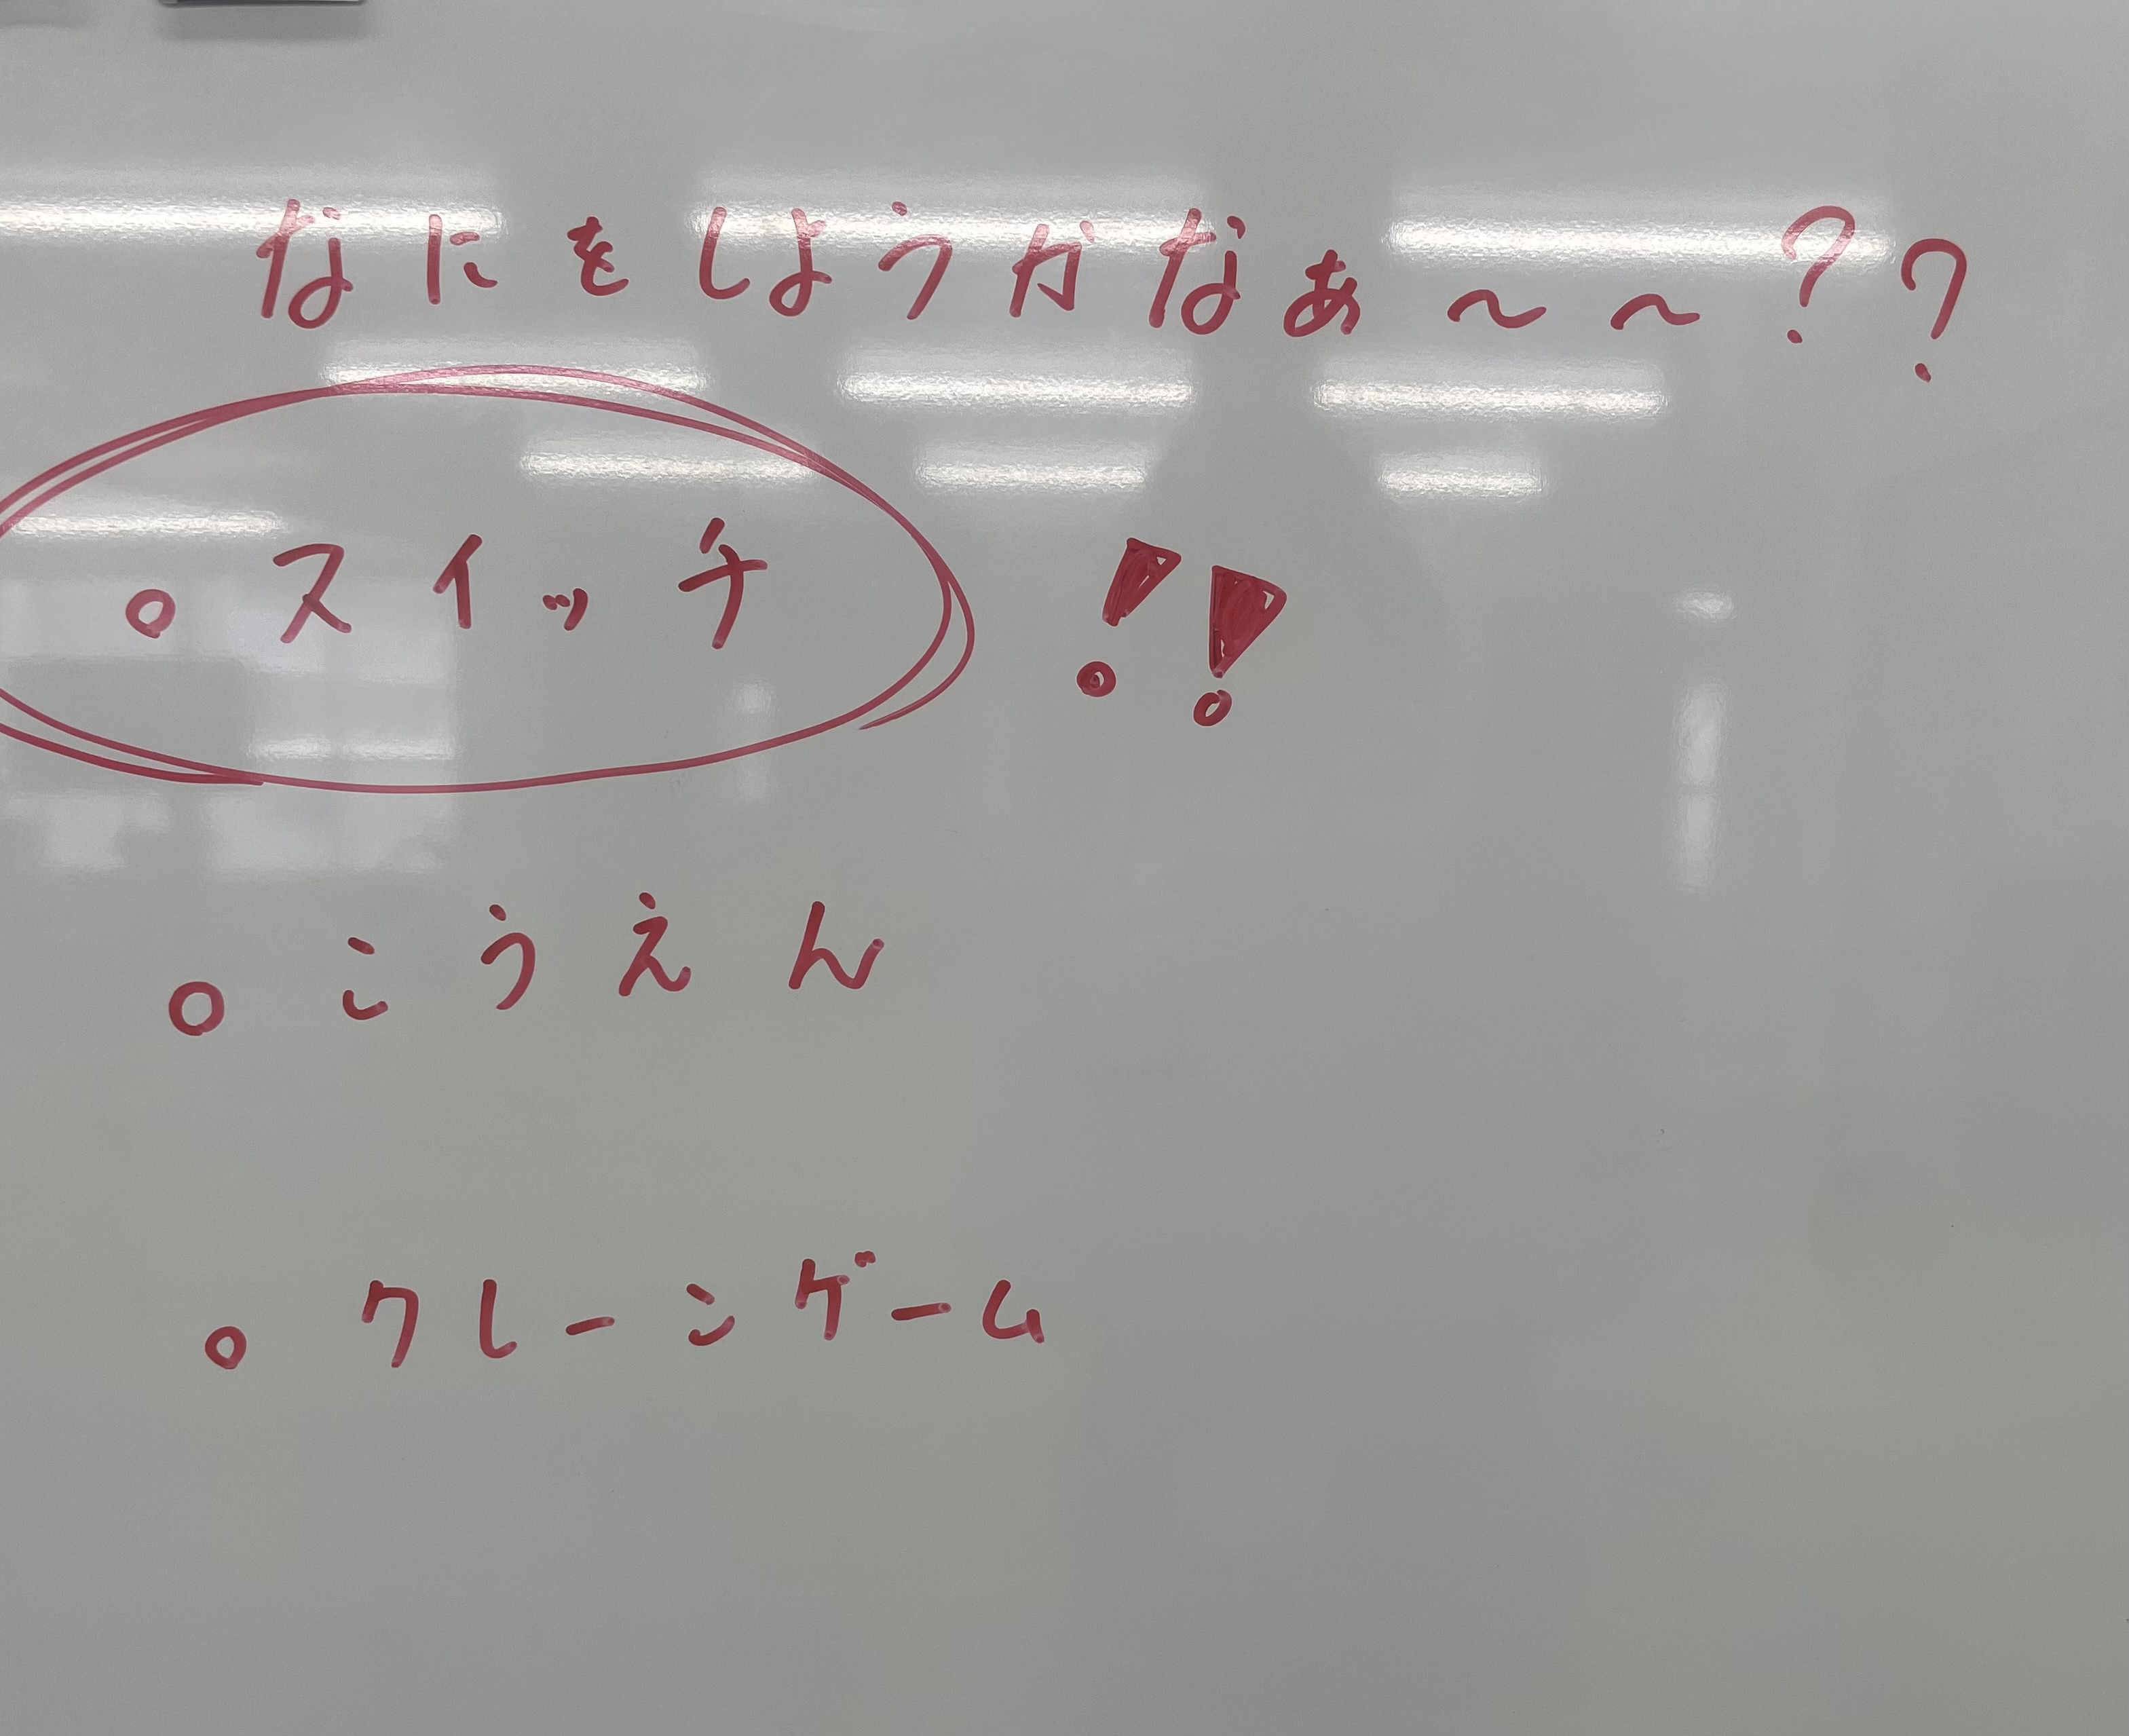 なにをしようかなぁ〜〜??
○スイッチ !!
○こうえん
○クレーンゲーム